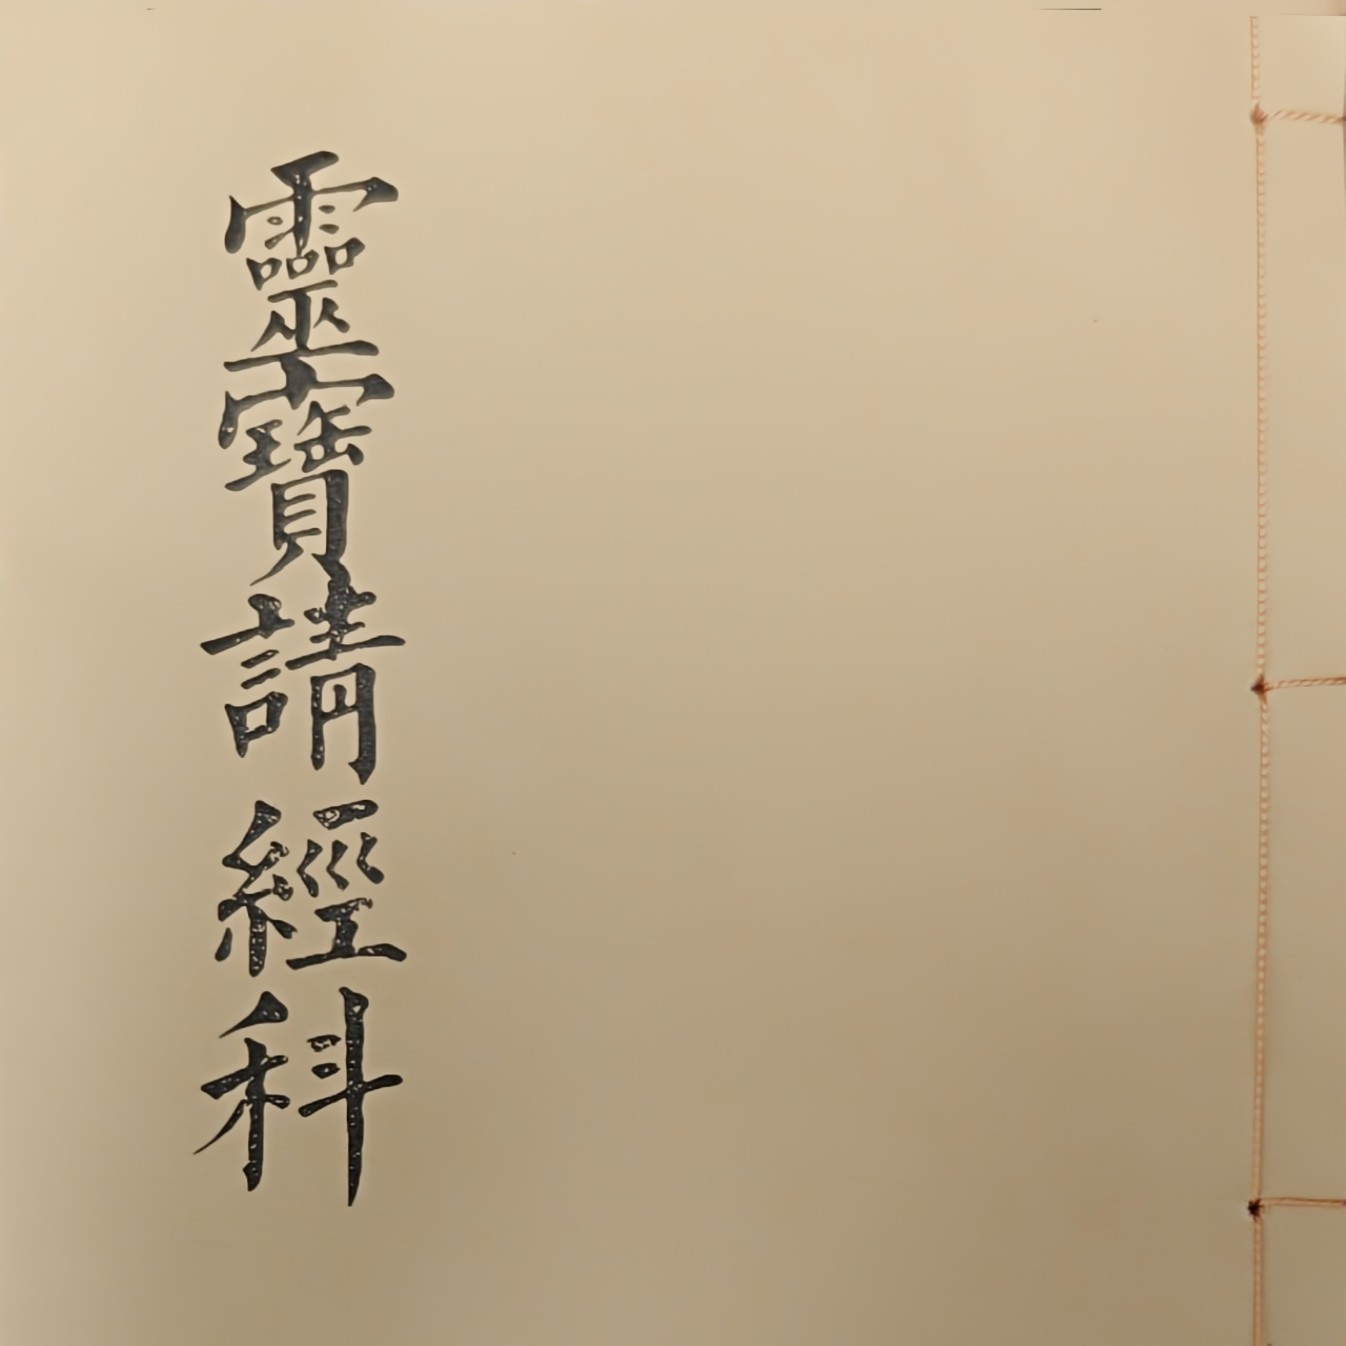 靈寶請經科